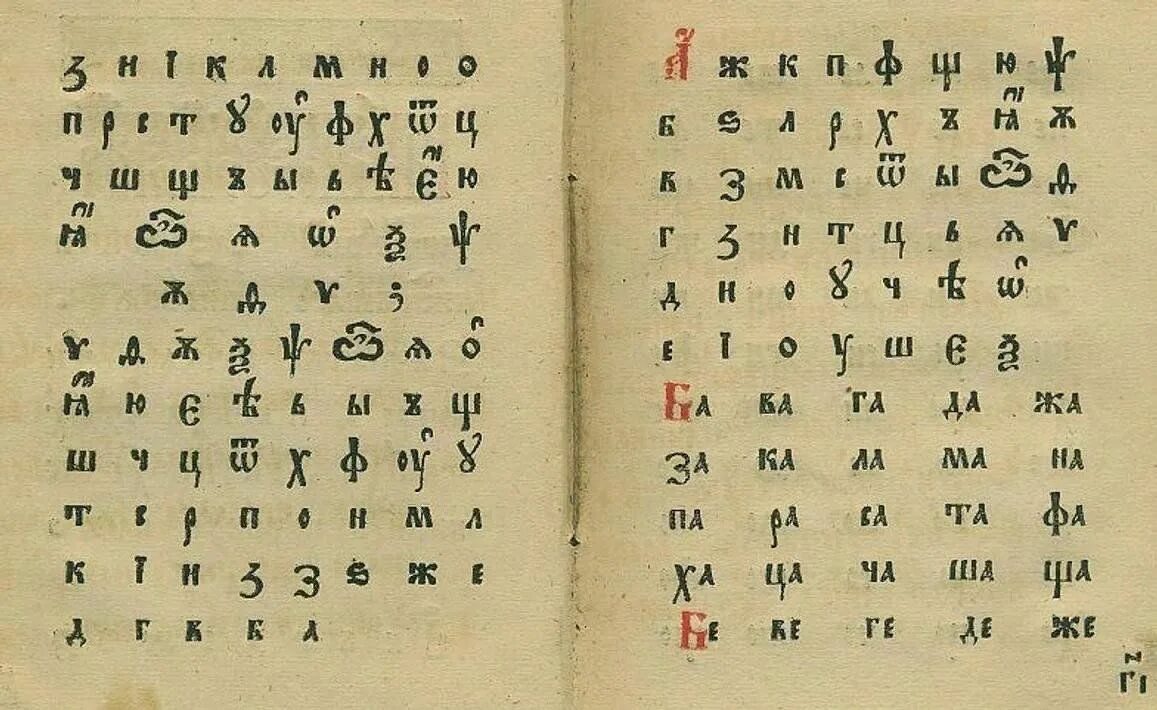 ꙁ н ї к л м н о ѻ
п р с т ꙋ ѹ҆ ф х ѿ ц
ч ш щ ъ ы ь ѣ є҆ ю
ꙗ҆ ѽ ѧ ѡ҆ ѯ ѱ
ѫ ѳ ѵ ;
ѵ ѳ ѫ ѯ ѱ ѽ ѧ ѻ҆
ꙗ҆ ю є ѣ ь ы ъ щ
ш ч ц ѿ х ф ѹ҆ ꙋ
т с р п о н м л
к ї и ꙁ з ѕ ж е
д г в б а
А҆ ж к п ф щ ю ѱ
б ѕ л р х ъ ꙗ҆ ѫ
в з м с ѿ ы ѽ ѳ
г ꙁ н т ц ь ѧ ѵ
д и о ꙋ ч ѣ ѡ҆
е ї ѻ у ш є ѯ
Ба ва га да жа
за ка ла ма на
па ра са та фа
ха ца ча ша ща
Бе ве ге де же
г҃і